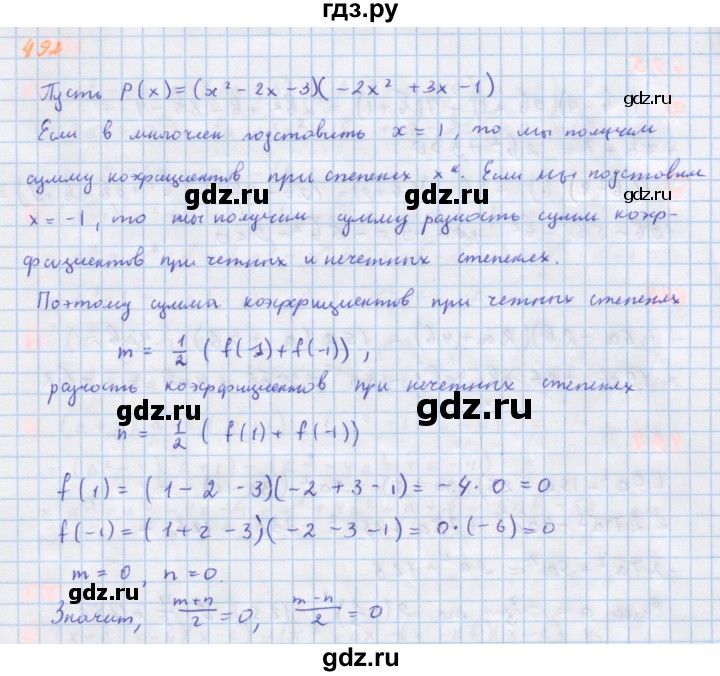 гдз.ру
492
Пусть P(x)=(x² - 2x - 3)(-2x² + 3x - 1)
gdz.ru
Если в многочлен подставить x = 1, то мы получим
сумму коэффициентов при степенях xᵏ. Если мы подставим
gdz.ru gdz.ru
x = -1, то мы получим сумму разность сумм коэф-
фициентов при четных и нечетных степенях.
Поэтому сумма коэффициентов при четных степенях
gdz.ru
m = 1/2 (f(1)+f(-1)),
разность коэффициентов при нечетных степенях
gdz.ru gdz.ru
n = 1/2 (f(1) + f(-1))
f(1) = (1 - 2 - 3)(-2 + 3 - 1) = -4·0 = 0
gdz.ru
f(-1) = (1 + 2 - 3)(-2 - 3 - 1) = 0·(-6) = 0
m = 0, n = 0.
gdz.ru gdz.ru
Значит, (m+n)/2 = 0, (m-n)/2 = 0
gdz.ru